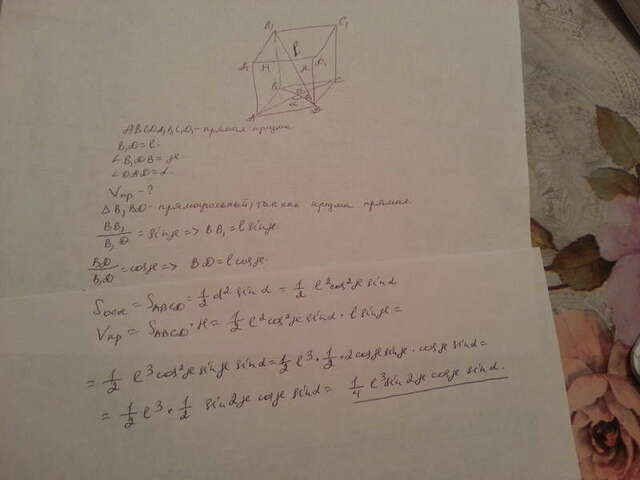 B₁ C₁
A₁ H D₁
B C
A D
ABCDA₁B₁C₁D₁ - прямая призма
B₁D = l.
∠B₁DB = μ.
∠OAD = α.
Vпр - ?
△BB₁D - прямоугольный, так как призма прямая.
BB₁/B₁D = sin μ => BB₁ = l sin μ
BD/B₁D = cos μ => BD = l cos μ.
Sосн = SABCD = 1/2 d² sin α = 1/2 l² cos² μ sin α
Vпр = SABCD · H = 1/2 l² cos² μ sin α · l sin μ =
= 1/2 l³ cos² μ sin μ sin α = 1/2 l³ · 1/2 · 2 cos μ sin μ · cos μ sin α =
= 1/2 l³ · 1/2 sin 2μ cos μ sin α = 1/4 l³ sin 2μ cos μ sin α.